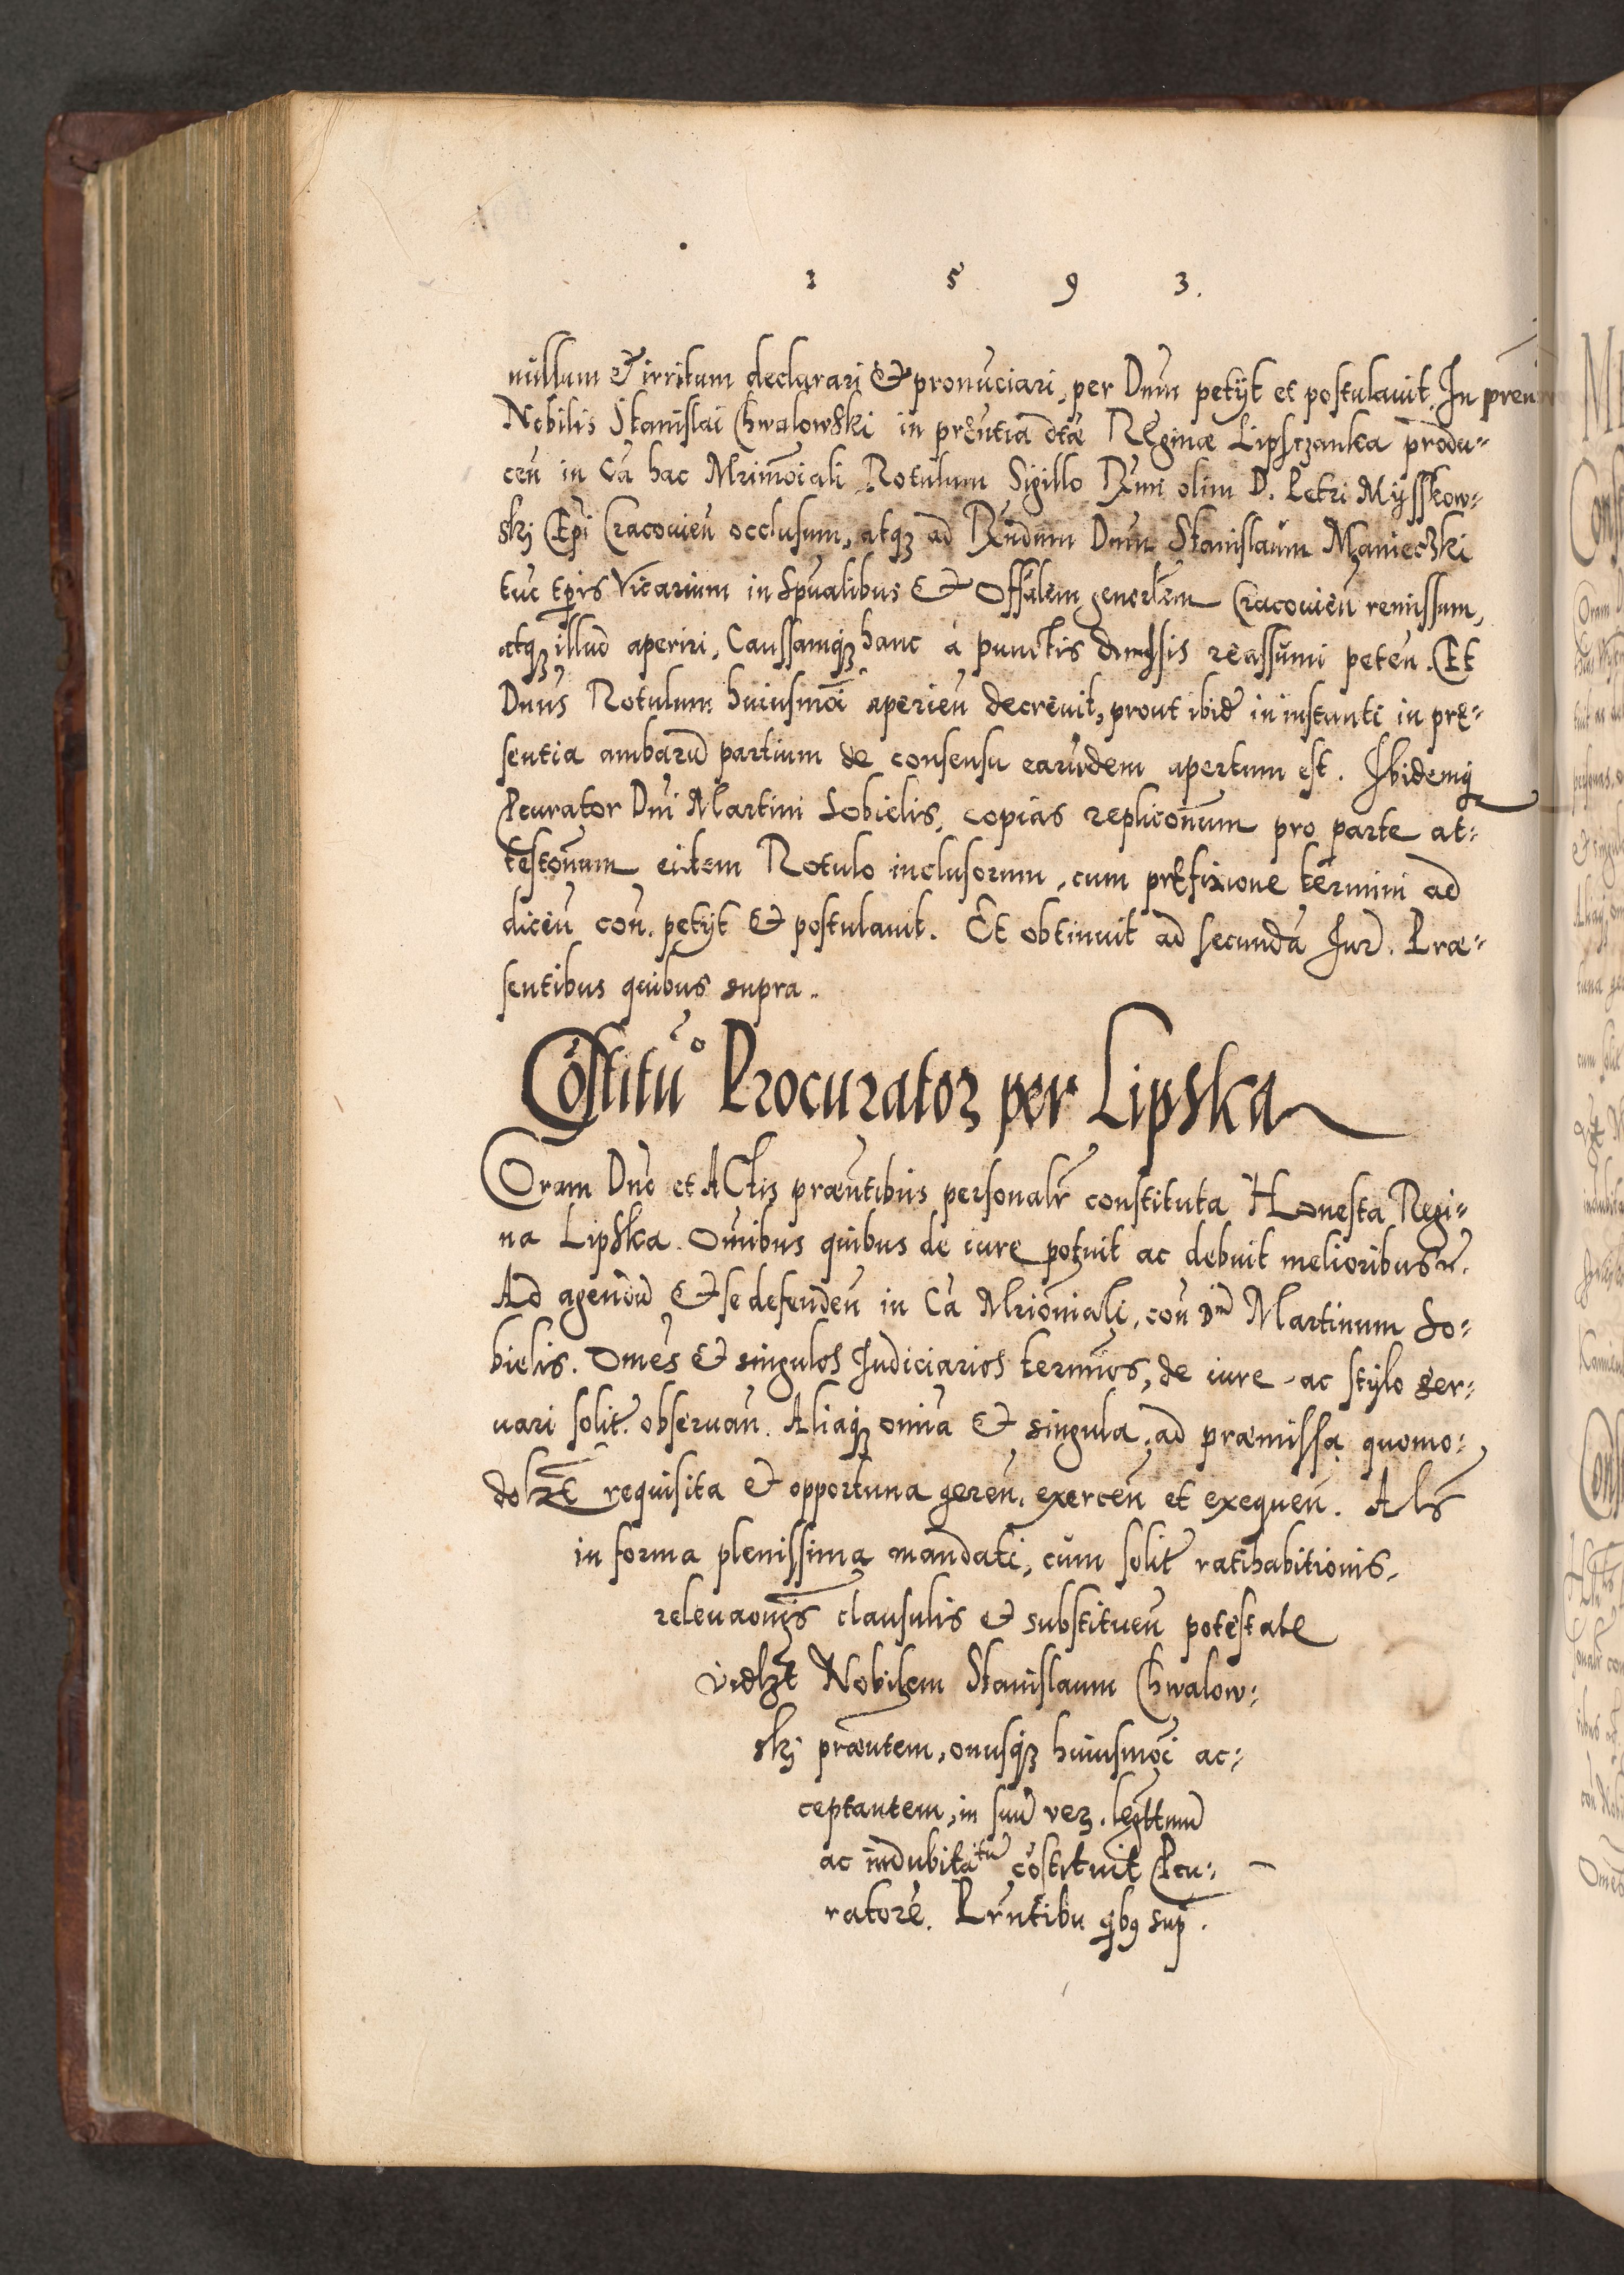 1 5 9 3.
nullum et irritum declarari & pronũciari, per Dnum petijt et postulavit. In
Nobilis Stanislai Chwalowski in pręntia dtæ Reginæ Lipsczanka produ-
cen̄ in Ca hac Mrimōiali Rotulum Sigillo Rmi olim D. Petri Mysskow-
skj Epi Cracovien̄ occlusum, atq3 ad Rndum Dnum Stanislaum
tūc tp̄ris Vicarium in Spũalibus & Offālem genērlem Cracovien̄ remissum,
atq3 illud aperiri, Caussamq3 hanc a punctis dimissis reassumi peten̄. Et
Dnus Rotulum huiusmōi aperien̄ decrevit, prout ibid̄ in instanti in prę-
sentia ambarū partium de consensu earūdem apertum est. Ibidemq3
Pcurator Dni Martini Sobielis, copias repliconum pro parte at-
testōnum eidem Rotulo inclusorum, cum pręfixione termini ad
dicēn con̄. petijt & postulavit. Et obtinuit ad secundā Jurd. Præ-
sentibus quibus supra.
Cōstitūo Procurator per Lipska
Coram Dno et Actis præn̄tibus personalr̄ constituta Honesta Regi-
na Lipska. Omibus quibus de iure potuit ac debuit melioribus r̄.
Ad agendū & se defenden̄ in Ca Mrimōniali, con̄ Dm̄ Martinum So-
bielis. Omēs & singulos Judiciarios terminos, de iure ac stylo ser-
vari solit̄. observan̄. Aliaq3 omīa & singula, ad præmissa quomo-
dolzt̄ requisita & opportuna geren̄, exercen̄ et exequen̄. Als̄
in forma plenissima mandati, cum solit̄ ratihabitionis,
relevaōnis clausulis & substituen̄ potestate
vidlzt Nobilem Stanislaum Chwalow-
skj præn̄tem, onusq3 huiusmōi ac-
ceptantem, in suū ver3. legittimū
ac indubitatū cōstituit Pcu-
ratorē. Prn̄tibu qbꝰ sup̄.